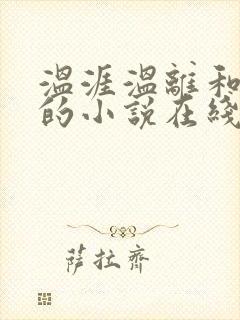 温涯温離和
的小説在綫
薩拉齊